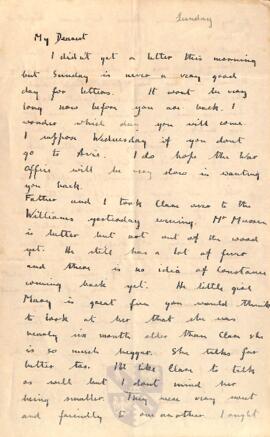 Sunday
My Dearest
I didn't get a letter this morning
but Sunday is never a very good
day for letters. It wont be very
long now before you are back. I
wonder which day you will come.
I suppose Wednesday if you dont
go to Avis. I do hope the War
Office will be very slow in wanting
you back.
Father and I took Clare over to the
Williams yesterday evening. Mr
is better but not out of the wood
yet. He still has a lot of fever
and there is no idea of Constance
coming back yet. The little girl
Mary is great fun you would think
to look at her that she was
nearly six months older than Clare she
is so much bigger. She talks far
better too. I'd like Clare to talk
as well but I dont mind her
being smaller. They were very sweet
and friendly to one another. I ought